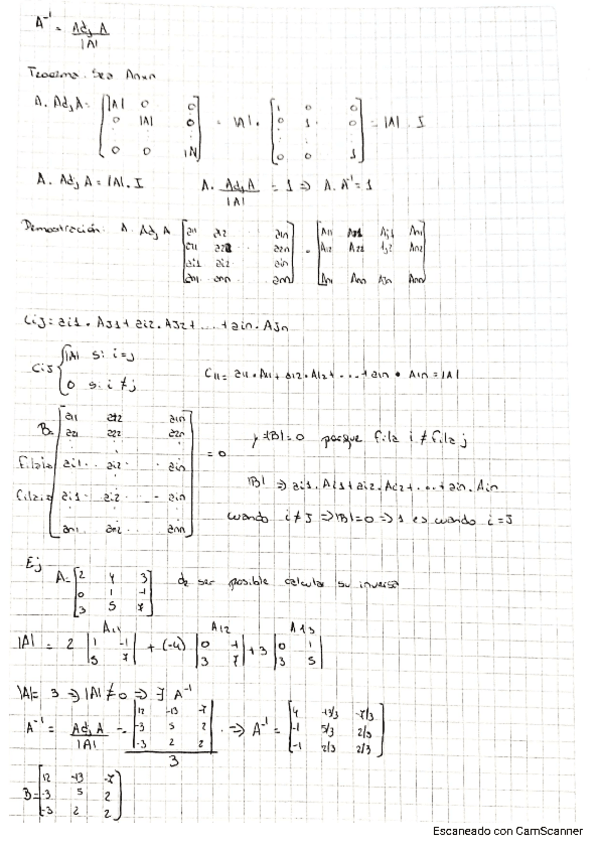 A⁻¹ = Adj A / |A|
Teorema. Sea Anxn
A. Adj A = [|A| 0 0; 0 |A| 0; : : :; 0 0 |A|] = |A|. [1 0 0; 0 1. 0; : : :; 0 0 1] = |A|. I
A. Adj A = |A|. I A. Adj A / |A| = 1 => A. A⁻¹ = 1
Demostración: A. Adj A [a11 a12 .. a1n; a21 a22 .. a2n; ai1 ai2 .. ain; an1 ann .. ann] . [A11 Aj1 An1; A12 A22 Aj2 An2; Ann Ajn Ann]
Cij = ai1. AJ1 + ai2. AJ2 + ... + ain. AJn
Cij { |A| si i=j
0 si i ≠ j
C11 = a11. A11 + a12. A12 + ... + a1n. A1n = |A|
B= [a11 a12 a1n; a21 a22 a2n; : : :; fila i ai1.. ai2. . ain; ai1. ai2. .. - ain; : : :; an1.. an2.. ann] = 0
|B|=0 porque fila i ≠ fila j
|B| => ai1. Ai1 + ai2. Ai2 + ... + ain. Ain
cuando i ≠ J => |B|=0 => 1 es cuando i = J
Ej
A= [2 4 3; 0 1 -1; 3 5 7] de ser posible calcular su inversa
A11 A12 A13
|A| = 2 |1 -1; 5 7| + (-4) |0 -1; 3 7| + 3 |0 1; 3 5|
|A| = 3 => |A| ≠ 0 => ∃ A⁻¹
A⁻¹ = Adj A / |A| = [12 -13 -7; -3 5 2; -3 2 2] / 3 . => A⁻¹ = [4 -13/3 -7/3; -1 5/3 2/3; -1 2/3 2/3]
B= [12 -13 -7; -3 5 2; -3 2 2]
Escaneado con CamScanner